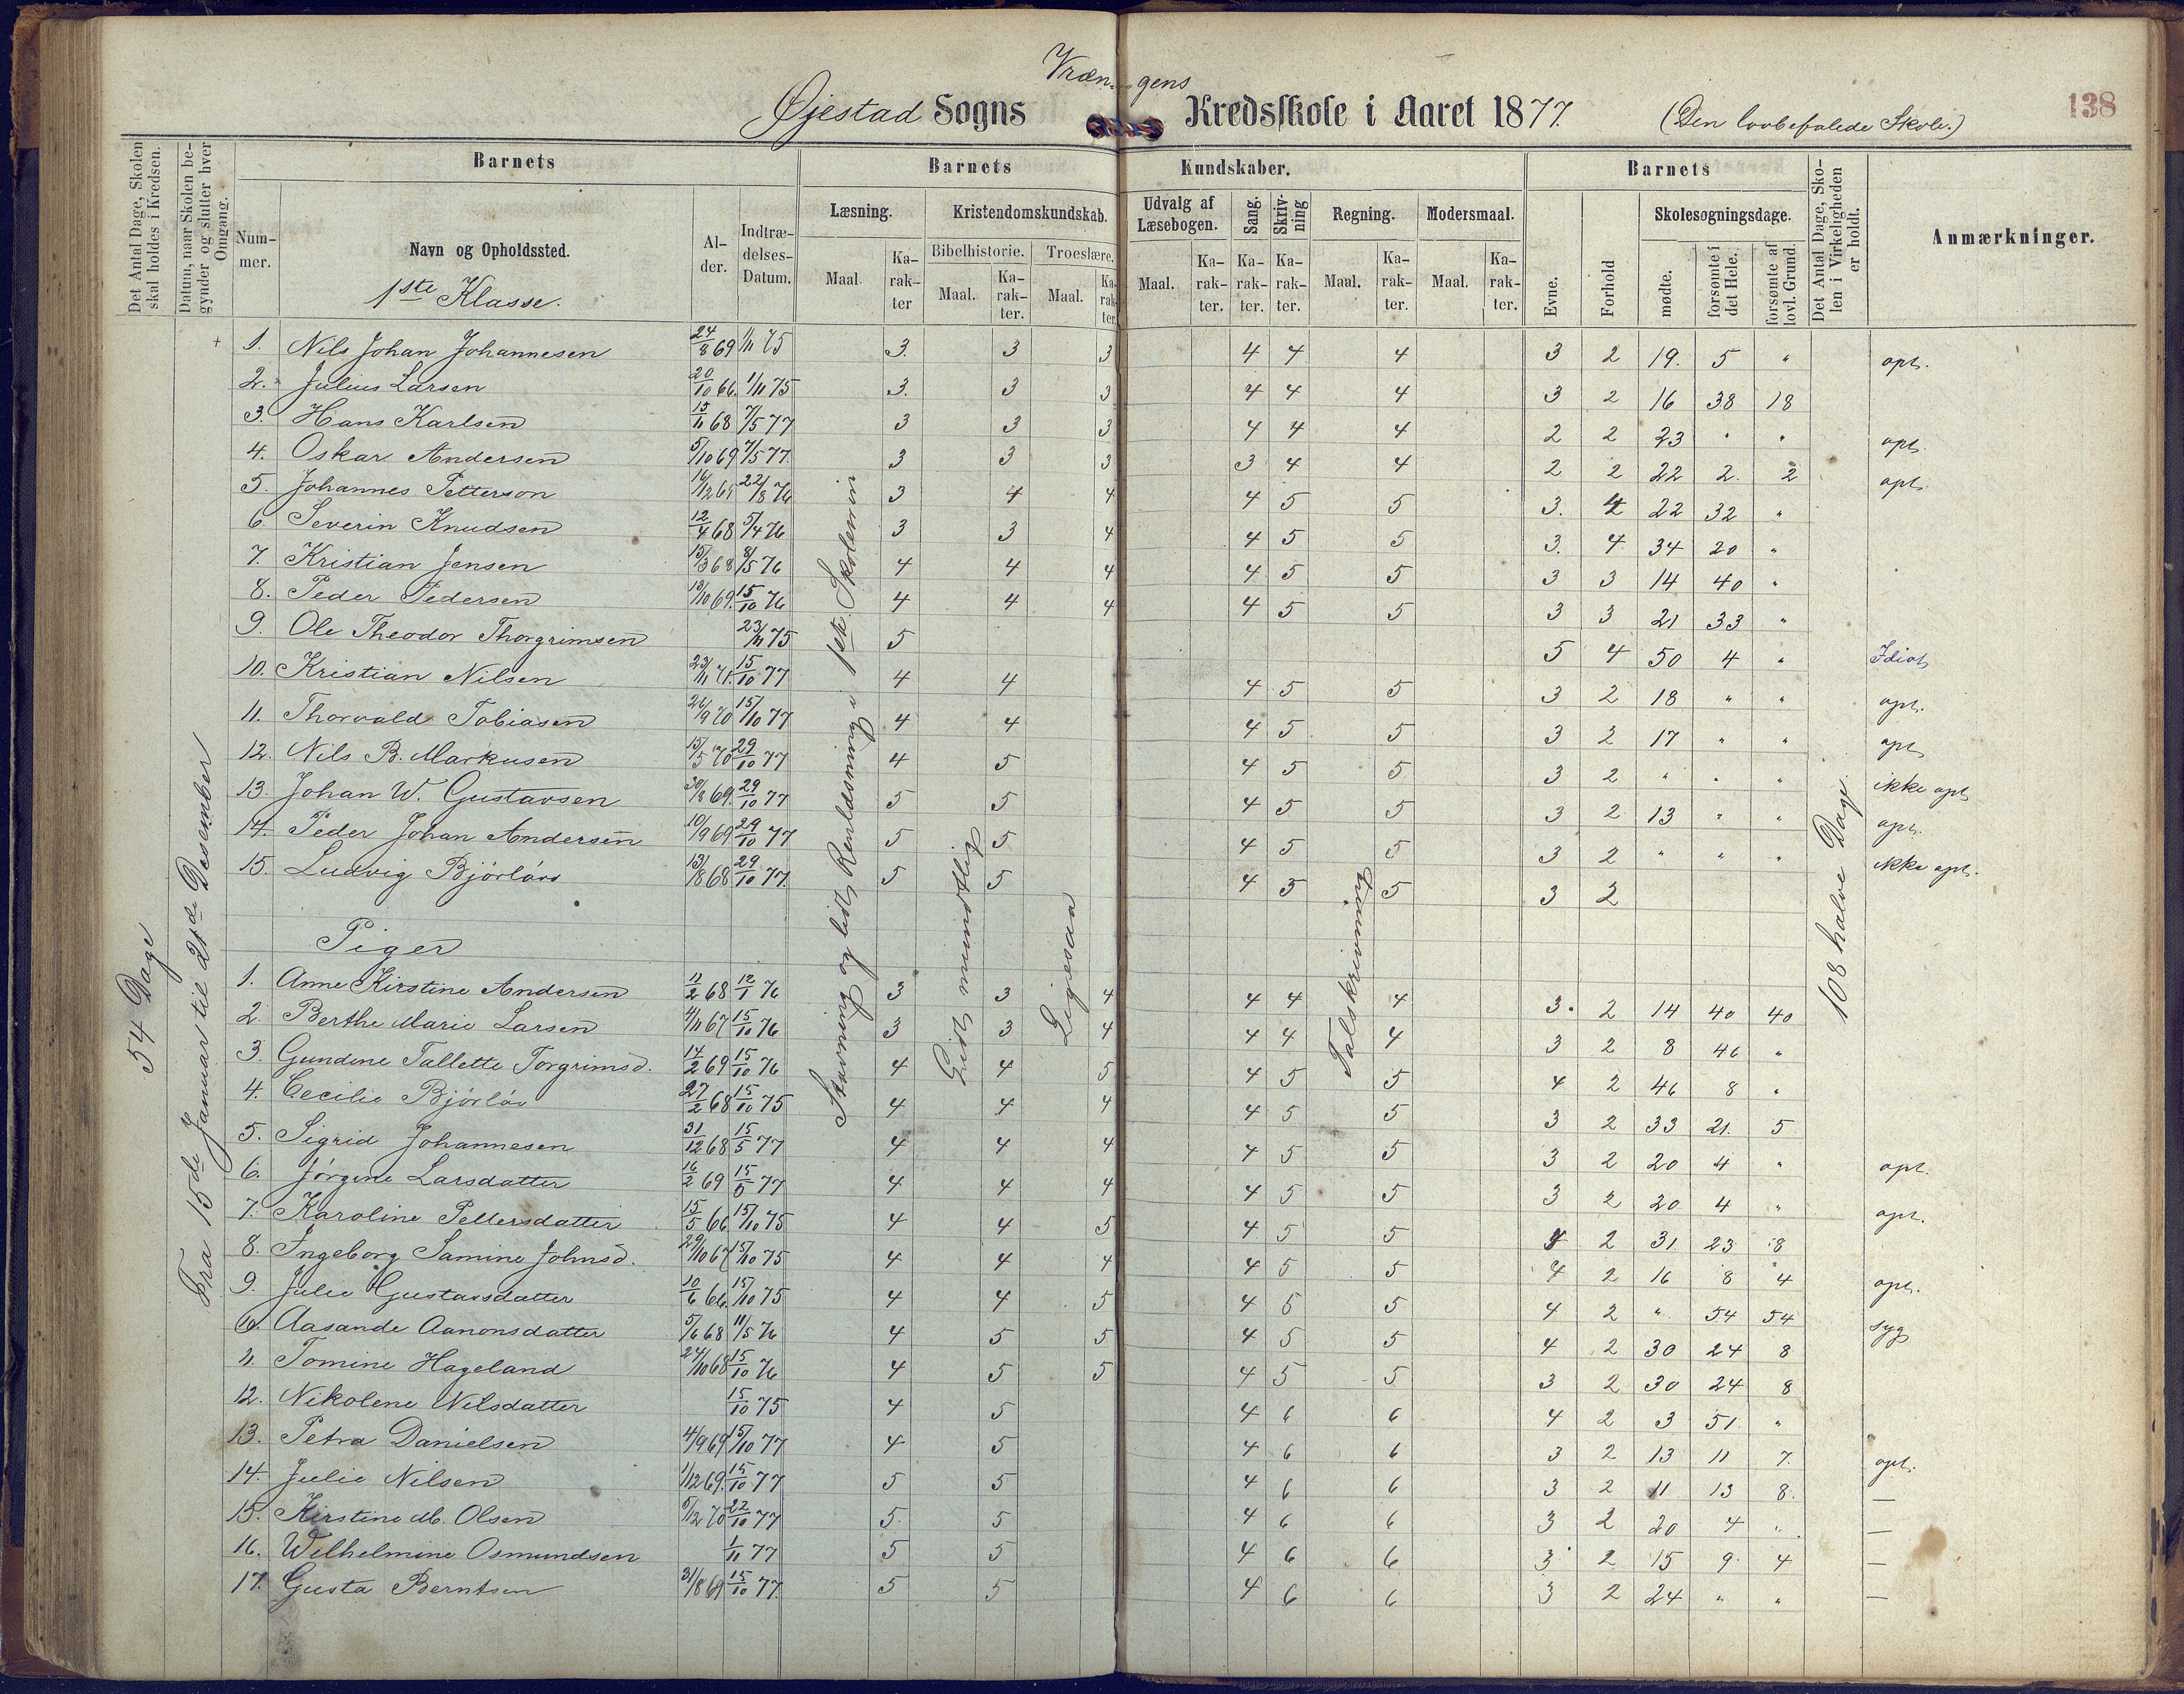 Vrængens
Øjestad Sogns Kredsskole i Aaret 1877. (Den lovbefalede Skole.)
138
Det Antal Dage, Skolen skal holdes i Kredsen.
Datum, naar Skolen begynder og slutter hver Omgang.
Barnets
Barnets Kundskaber.
Barnets
Det Antal Dage, Skolen i Virkeligheden er holdt.
Anmærkninger.
Nummer.
Navn og Opholdssted.
Alder.
Indtrædelses-Datum.
Læsning.
Kristendomskundskab.
Udvalg af Læsebogen.
Sang.
Skrivning
Regning.
Modersmaal.
Evne.
Forhold
Skolesøgningsdage.
Bibelhistorie.
Troeslære.
Maal.
Karakter
Maal.
Karakter.
Maal.
Karakter.
Maal.
Karakter.
Karakter.
Karakter.
Maal.
Karakter.
Maal.
Karakter.
mødte.
forsømte i det Hele.
forsømte af lovl. Grund.
1ste Klasse.
54 Dage
Fra 15de Januar til 21de Desember
Stavning og lidt Renlæsning i 1ste
Lidt mundtlig
Ligesaa
Talskrivning
108 halve Dage
1. Nils Johan Johannesen 24/8 69 1/11 75 3. 3 3 4 4 4 3 2 19. 5 " opt.
2. Julius Larsen 20/10 66. 1/11 75 3. 3 3 4 4 4 3 2 16 38 18
3. Hans Karlsen 15/11 68 7/5 77 3 3 3 4 4 4 2 2 23 " " opt.
4. Oskar Andersen 5/10 69 7/5 77. 3 3 3 3 4 4 2 2 22 2. 2 opt.
5. Johannes Petterson 22/8 76 3 4 4 4 5 5 3. 4 22 32 "
6. Severin Knudsen 12/4 68 5/4 76 3 3 4 4 5 5 3. 4 34 20 "
7. Kristian Jensen 15/3 68 8/5 76 4 4 4 4 5 5 3 3 14 40 "
8. Peder Pedersen 13/10 69. 15/10 76 4 4 4 4 5 5 3 3 21 33 "
9. Ole Theodor Thorgrimsen 23/11 75 5 5 4 50 4 " Idiot
10. Kristian Nilsen 23/11 71. 15/10 77 4 4 4 5 5 3 2 18 " " opt.
11. Thorvald Tobiasen 26/9 70 15/10 77 4 4 4 5 5 3 2 17 " " opt.
12. Nils B. Markusen 15/5 70 29/10 77 4 5 4 5 5 3 2 " " " ikke opt.
13. Johan W. Gustavsen 30/8 69. 29/10 77 5 5 4 5 5 3 2 13 " " opt.
14. Peder Johan Andersen 10/9 69 29/10 77 5 5 4 5 5 3 2 " " " ikke opt.
15. Ludvig Bjørløv 13/8 68 29/10 77. 5 5 4 5 5 3 2
Piger
1. Anne Kirstine Andersen 11/2 68 12/1 76 3 3 4 4 4 4 3. 2 14 40 40
2. Berthe Marie Larsen 4/11 67 15/10 76 3 3 4 4 4 4 3 2 8 46 "
3. Gundine Tallette Torgrimsd. 14/2 69 15/10 76 4 4 5 4 5 5 4 2 46 8 "
4. Cecilie Bjørløv 27/2 68 15/10 75 4 4 4 4 5 5 3 2 33 21. 5
5. Sigrid Johannesen 31/12 68 15/5 77 4 4 4 4 5 5 3 2 20 4 " opt.
6. Jørgine Larsdatter 16/2 69 15/5 77 4 4 4 4 5 5 3 2 20 4 " opt.
7. Karoline Pettersdatter 15/5 66 15/10 75 4 4 5 4 5 5 4 2 31 23 8
8. Ingeborg Samine Johnsd. 29/10 67 15/10 75 4 4 4 4 5 5 4 2 16 8 4 opt.
9. Julie Gustavsdatter 10/6 66. 15/10 75 4 4 5 4 5 5 4 2 " 54 54 syg
10. Aasande Aanonsdatter 5/6 68 11/5 76 4 5 5 4 5 5 4 2 30 24 8
11. Tomine Hageland 24/10 68 15/10 76 4 5 5 4 5 5 3 2 30 24 8
12. Nikolene Nilsdatter 15/10 75 4 5 4 6 6 4 2 3 51 "
13. Petra Danielsen 4/9 69 15/10 77 4 5 4 6 6 3 2 13 11 7. opt.
14. Julie Nilsen 1/12 69. 15/10 77 5 5 4 6 6 3 2 11 13 8. —
15. Kirstine M. Olsen 5/12 70 22/10 77 5. 5 4 6 6 3 2 20 4 " —
16. Wilhelmine Osmundsen 1/11 77 5 5 4 6 6 3 2 15 9. 4 —
17. Gusta Berntsen 31/8 69 15/10 77. 5 5 4 6 6 3 2 24 " " —